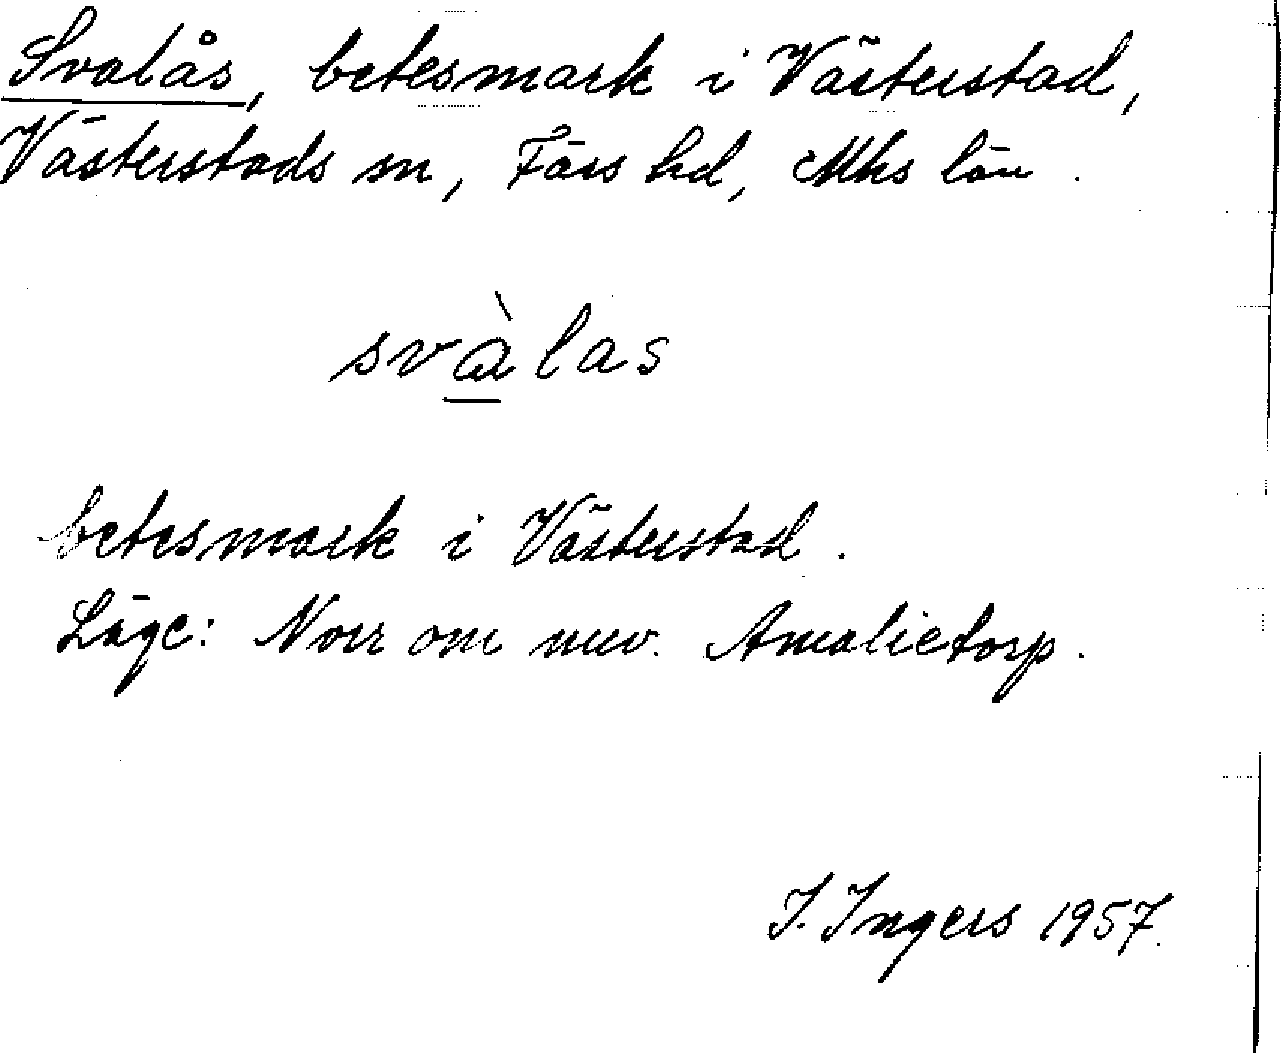 Svalås, betesmark i Västerstad,
Västerstads sn, Färs hd, Mhs län.
svàlas
betesmark i Västerstad.
Läge: Norr om nuv. Amalietorp.
I. Ingers 1957.